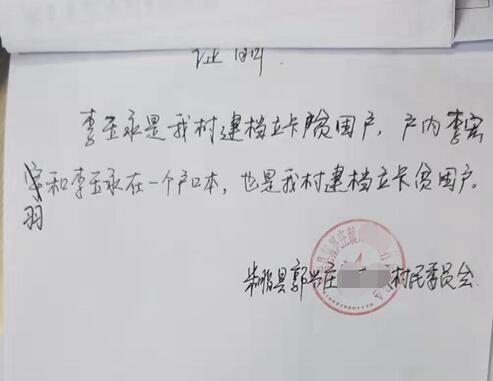 证明.
李玉永是我村建档立卡贫困户，户内李宏
和李玉永在一个户口本，也是我村建档立卡贫困户。
羽
县郭兴庄 村民委员会
县郭兴庄镇